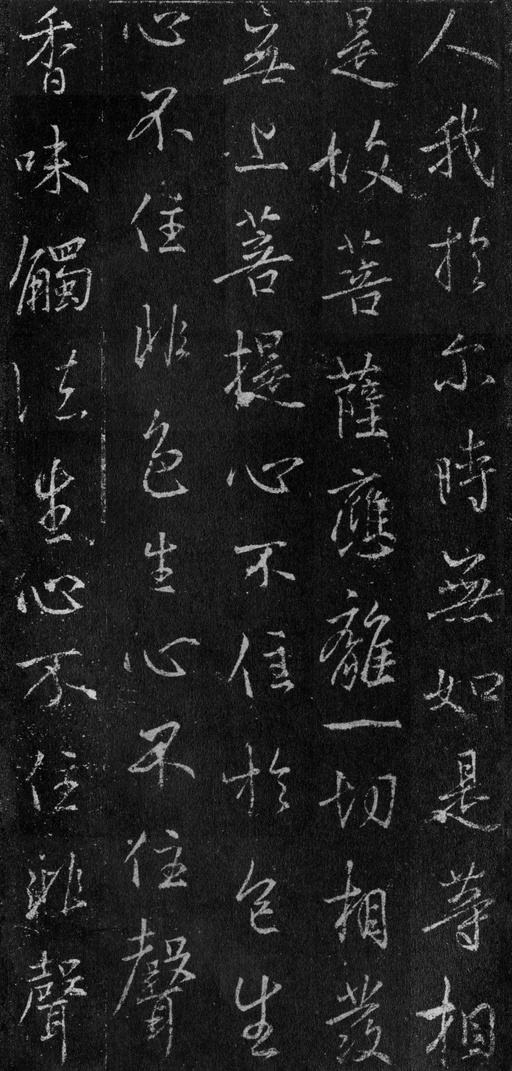 人我於尔時無如是等相
是故菩薩應離一切相發
無上菩提心不住於色生
心不住非色生心不住聲
香味觸法生心不住非聲